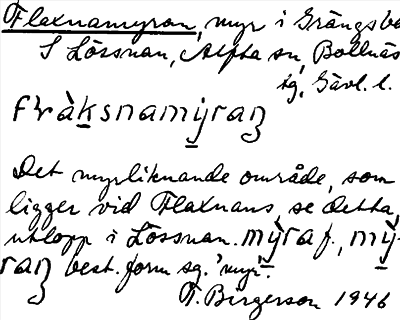 Flaxnamyran, myr i Grängsbo
S Lössnan, Alfta sn, Bollnäs
tg, Gävl. l.
Det myrliknande område, som
ligger vid Flaxnans, se detta,
utlopp i Lössnan. mỳra f., mỳ-
raŋ best. form sg. 'myr'.
T. Birgerson 1946